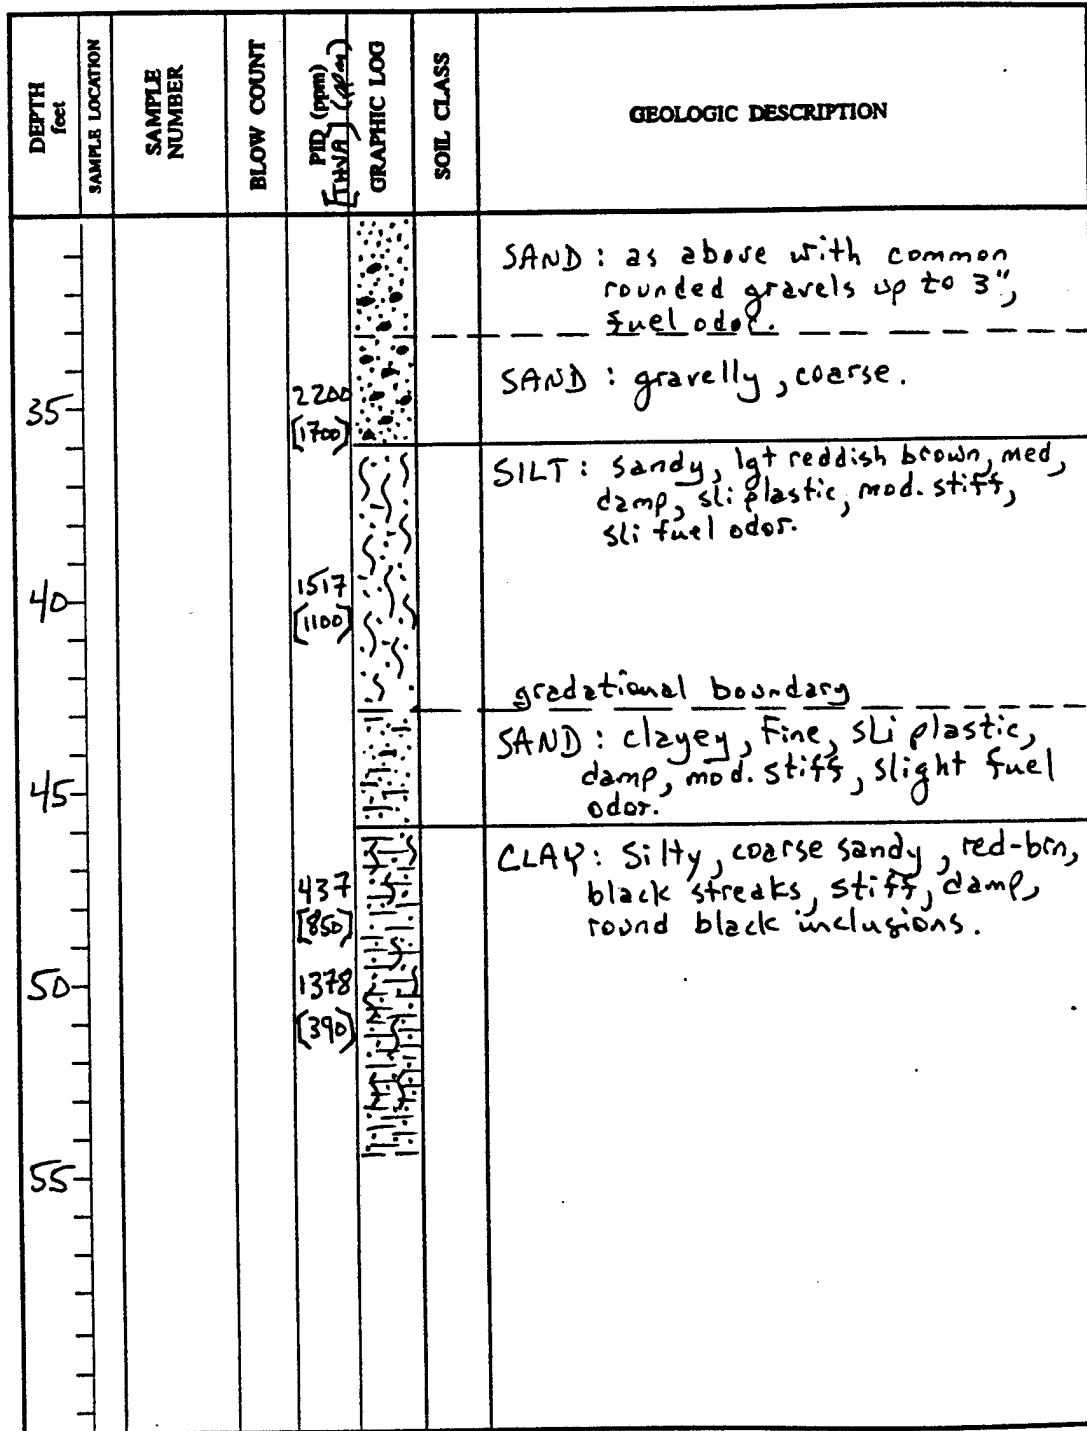 DEPTH
feet
SAMPLE LOCATION
SAMPLE
NUMBER
BLOW COUNT
PID (ppm)
[THVA] (ppm)
GRAPHIC LOG
SOIL CLASS
GEOLOGIC DESCRIPTION
SAND : as above with common
rounded gravels up to 3",
fuel odor.
SAND : gravelly, coarse.
2200
35
[1700]
SILT : sandy, lgt reddish brown, med,
damp, sli plastic, mod. stiff,
sli fuel odor.
1517
40
[1100]
gradational boundary
SAND : clayey, Fine, sli plastic,
damp, mod. stiff, slight fuel
45
odor.
CLAY : Silty, coarse sandy, red-brn,
437
black streaks, stiff, damp,
[850]
round black inclusions.
50
1378
[390]
55